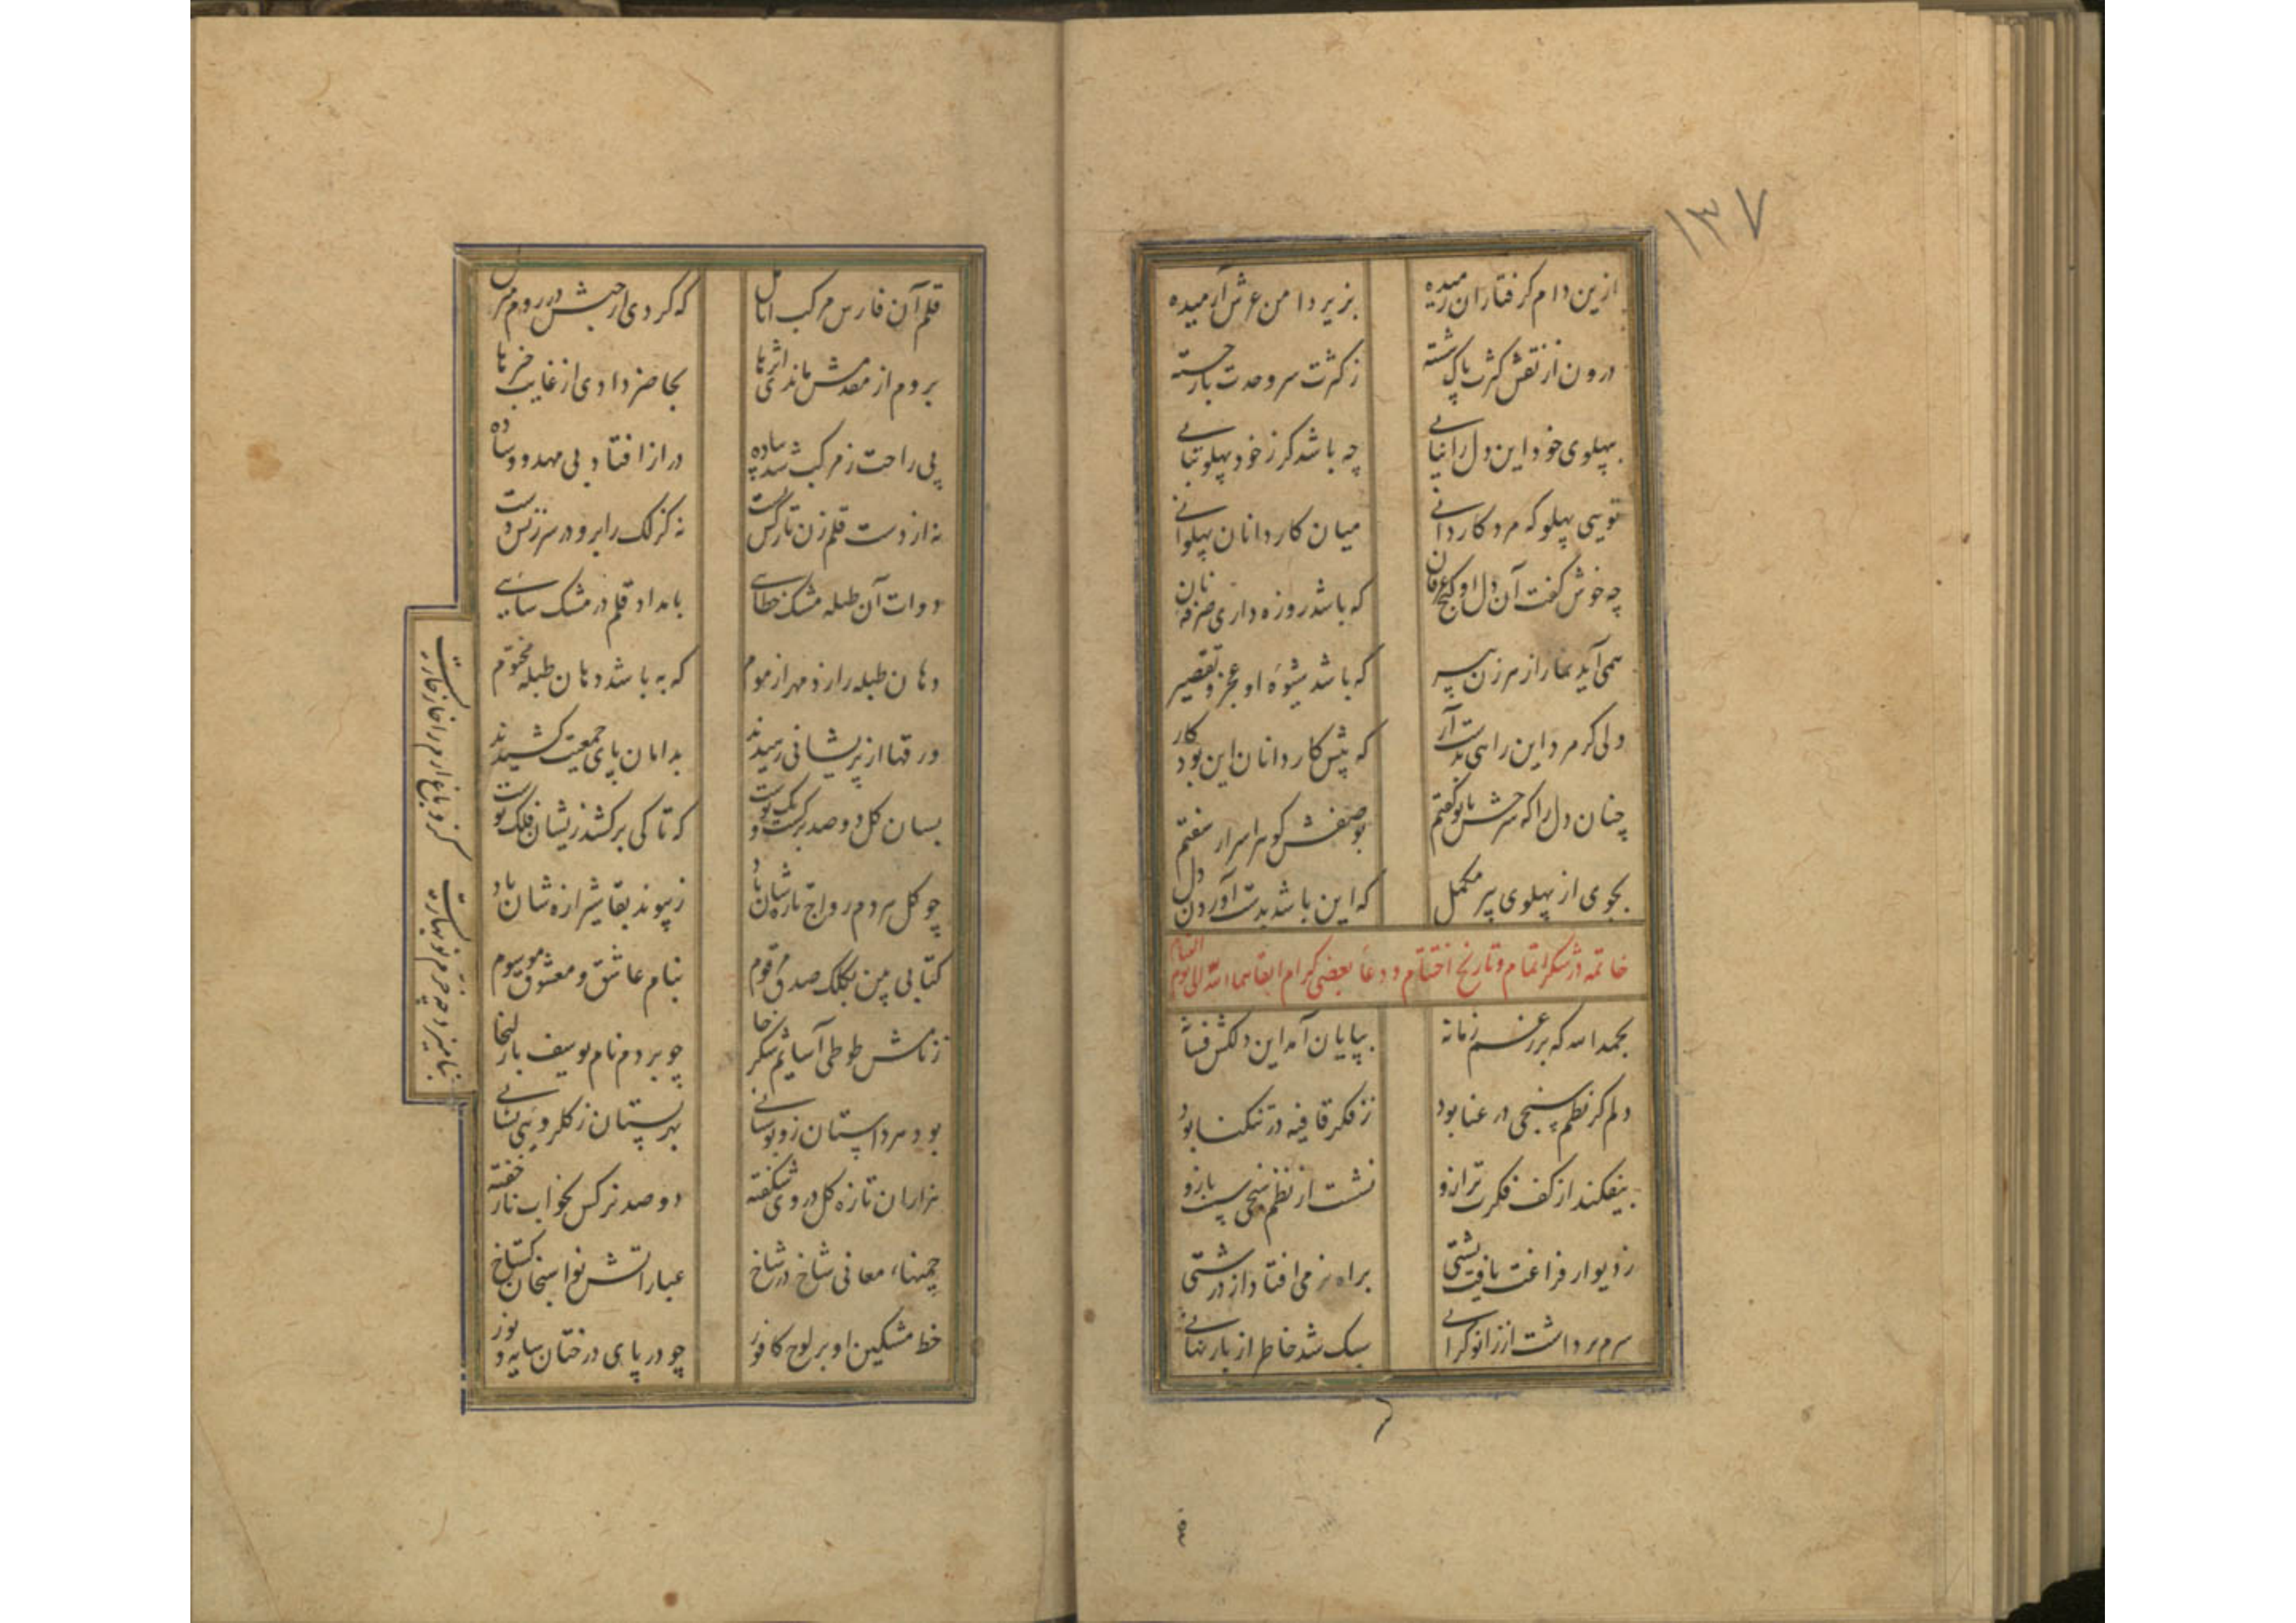 ۱۳۷
ازین دام گرفتاران رمیده بزیر دامن عرش آرمیده
درون از نقش کثرت پاک شسته ز کثرت سر وحدت باز جسته
بپهلوی خود این دل را نیابی چه باشد گر ز خود پهلو بتابی
تویی پهلو که مرد کاردانی میان کاردانان پهلوانی
چه خوش گفت آن دل او گنج عرفان که باشد روزه داری صرفه نان
همی آید نماز از هر زن پیر که باشد شیوه او عجز و تقصیر
ولی گر مرد این راهی بدست آر که پیش کاردانان این بود کار
چنان دل را که شرحش با تو گفتم بوصفش گوهر اسرار سفتم
بجوی از پهلوی پیر مکمل که این باشد بدست آوردن دل
خاتمه در شکر اتمام و تاریخ اختتام و دعاء بعضی کرام ابقاهما الله الی یوم القیام
بحمدالله که بر رغم زمانه بپایان آمد این دلکش فسانه
دلم کز نظم سنجی در عنا بود ز فکر قافیه در تنگنا بود
بیفکند از کف فکرت ترازو نشست از نظم سنجی سست بازو
ز دیوار فراغت یافت پشتی براه نرمی افتاد از درشتی
سرم برداشت از زانو گرانی سبک شد خاطر از بار نهانی
قلم آن فارس مرکب انامل که کردی از حبش در روم منزل
بروم از مقدمش ماندی اثرها بحاضر دادی از غایب خبرها
پی راحت ز مرکب شد پیاده دراز افتاد بی مهد و وساده
نه از دست قلم زن تارکش خست نه گزلک را برو در سرزنش دست
دوات آن طبله مشک خطایی بامداد قلم در مشک سایی
دهان طبله را زد مهر از موم که به باشد دهان طبله مختوم
ورقها از پریشانی رسیدند بدامان پای جمعیت کشیدند
بسان گل دو صد برگست و یک پوست که تا کی برکشد زیشان فلک پوست
چو گل مردم رواج تازه شان باد ز پیوند بقا شیرازه شان باد
کتابی بین بکلک صدق مرقوم بنام عاشق و معشوق موسوم
ز نامش طوطی آسایم شکر خا چو بردم نام یوسف با زلیخا
بود هر داستان زو بوستانی بهر بستان ز گلرویی نشانی
هزاران تازه گل در وی شکفته دو صد نرگس بخواب ناز خفته
چمنهاء معانی شاخ در شاخ عباراتش نواسنجان گستاخ
خط مشکین او بر لوح کافور چو در پای درختان سایه و نور
بنامیزد چه خرم نوبهاریست کزو باغ ارم را خار خاریست